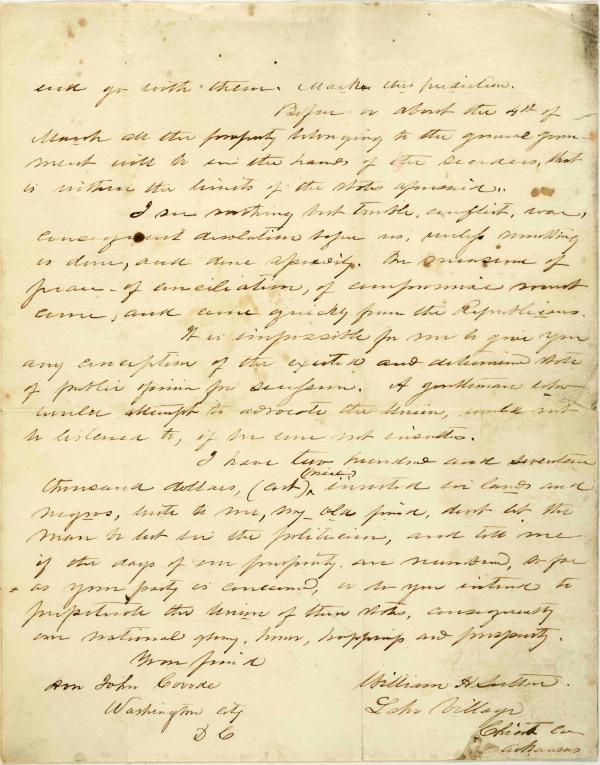 and go with them. Mark this prediction.
Before or about the 4th of
March all the property belonging to the general govern
ment will be in the hands of the seceders, that
is within the limits of the states aforesaid.
I see nothing but trouble, conflict, war,
consequent desolation before us, unless something
is done, and done speedily. The measure of
peace - of conciliation, of compromise must
come, and come quickly from the Republicans.
It is impossible for me to give you
any conception of the excited and determined state
of public opinion for secession. A gentleman who
would attempt to advocate the Union, would not
be listened to, if he were not insulted.
I have two hundred and seventeen
thousand dollars, (cost price) invested in lands and
negros, write to me, my old friend, dont let the
man be lost in the politician, and tell me
if the days of our prosperity are numbered, so far
as your party is concerned, or do you intend to
perpetuate the Union of these states, consequently
our national glory, honor, happiness and prosperity.
Your friend
Hon John Covode
William H. Sutton.
Washington City
Lake Village
D C
Chicot Co
Arkansas